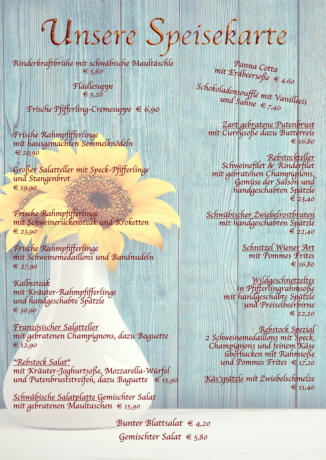 Unsere Speisekarte
Rinderkraftbrühe mit schwäbische Maultäschle
€ 5,60
Flädlesuppe
€ 5,20
Frische Pfifferling-Cremesuppe € 6,90
Frische Rahmpfifferlinge
mit hausgemachten Semmelknödeln
€ 20,90
Großer Salatteller mit Speck-Pfifferlinge
und Stangenbrot
€ 19,90
Frische Rahmpfifferlinge
mit Schweinerückensteak und Kroketten
€ 23,90
Frische Rahmpfifferlinge
mit Schweinemedaillons und Bandnudeln
€ 27,90
Kalbsteak
mit Kräuter-Rahmpfifferlinge
und handgeschabte Spätzle
€ 30,90
Französischer Salatteller
mit gebratenen Champignons, dazu Baguette
€ 12,90
"Rebstock Salat"
mit Kräuter-Joghurtsoße, Mozzarella-Würfel
und Putenbruststreifen, dazu Baguette € 15,90
Schwäbische Salatplatte Gemischter Salat
mit gebratenen Maultaschen € 15,90
Panna Cotta
mit Erdbeersoße € 4,60
Schokoladensoufflé mit Vanilleeis
und Sahne € 7,40
Zart gebratene Putenbrust
mit Currysoße dazu Butterreis
€ 16,80
Rebstockteller
Schweinefilet & Rinderfilet
mit gebratenen Champignons,
Gemüse der Saison und
handgeschabten Spätzle
€ 23,40
Schwäbischer Zwiebelrostbraten
mit handgeschabten Spätzle
€ 22,40
Schnitzel Wiener Art
mit Pommes Frites
€ 16,80
Wildgeschnetzeltes
in Pfifferlingrahmsoße
mit handgeschabte Spätzle
und Preiselbeerbirne
€ 22,20
Rebstock Spezial
2 Schweinemedaillons mit Speck,
Champignons und feinem Käse
überbacken mit Rahmsoße
und Pommes Frites € 17,20
Käs'spätzle mit Zwiebelschmelze
€ 11,40
Bunter Blattsalat € 4,20
Gemischter Salat € 5,80